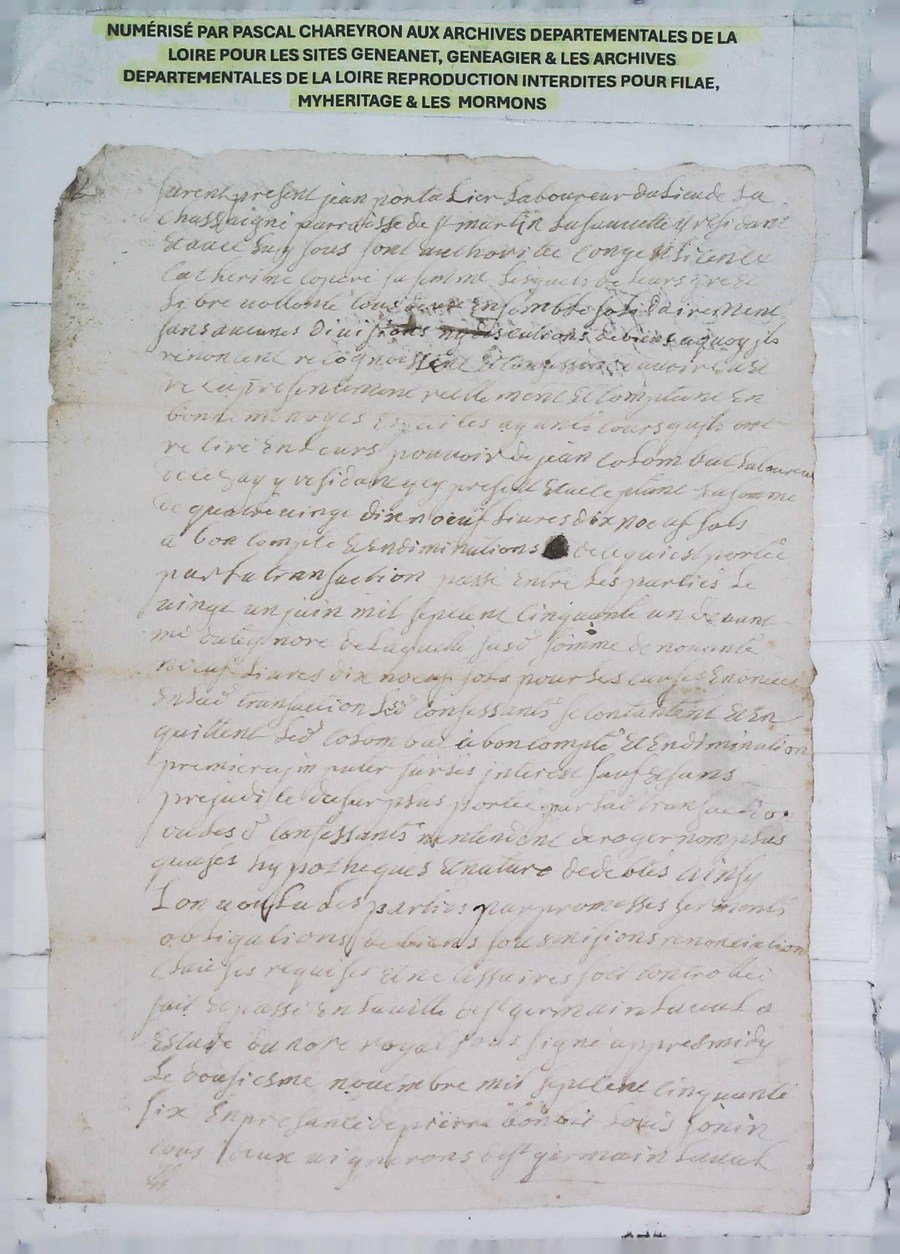 NUMÉRISÉ PAR PASCAL CHAREYRON AUX ARCHIVES DEPARTEMENTALES DE LA
LOIRE POUR LES SITES GENEANET, GENEAGIER & LES ARCHIVES
DEPARTEMENTALES DE LA LOIRE REPRODUCTION INTERDITES POUR FILAE,
MYHERITAGE & LES MORMONS
furent present jean portalier Laboureur du Lieu de La
Chassaigne parroisse de st martin La sauvetté y residant
Et avec Luy sous son authorité congé et licence
Catherine sa femme Lesquels de leurs gré et
Libre vollonté tous deux Ensemble solidairement
sans aucunes Divisions ny discutions de biens a quoy jls
renoncent recognoissent Et confessent avoir Eu et
reçu presentement reellement Et comptant En
bonne monoyes Espeices ayants cours qu'jls ont
retiré En Leurs pouvoir de jean Colombat Laboureur
y residant jcy present Et acceptant La somme
de quatre vingt dix noeuf Livres dix noeuf sols
a bon compte Et En diminutions de ce qui Est portée
par La transaction passé Entre Les parties Le
vingt un juin mil sept cent Cinquante un devant
me notre de Laquelle susd somme de nonante
noeuf Livres dix noeuf sols pour Les causes Enoncés
En Lad transaction Lesd confessants se contantent Et En
quittent Led Colombat a bon compte Et En diminution
premier a jmputer sur ses jnterest sauf Et sans
prejudice du surplus portée par Lad transaction
Lesd Confessants n'entendent deroger non plus
qu'a ses hypotheques Et nature de debtes Ainsy
L'on voulu Les parties par promesses serments
obligations de biens soumisions renonciation
Clauses requises Et necessaires soit controllé
fait Et passé En La ville de st germain Laval a
Estude du nore royal sous signé appres midy
Le dousiesme novembre mil sept cent cinquante
six En presance de pierre Louis
tous deux vignerons de st germain Laval